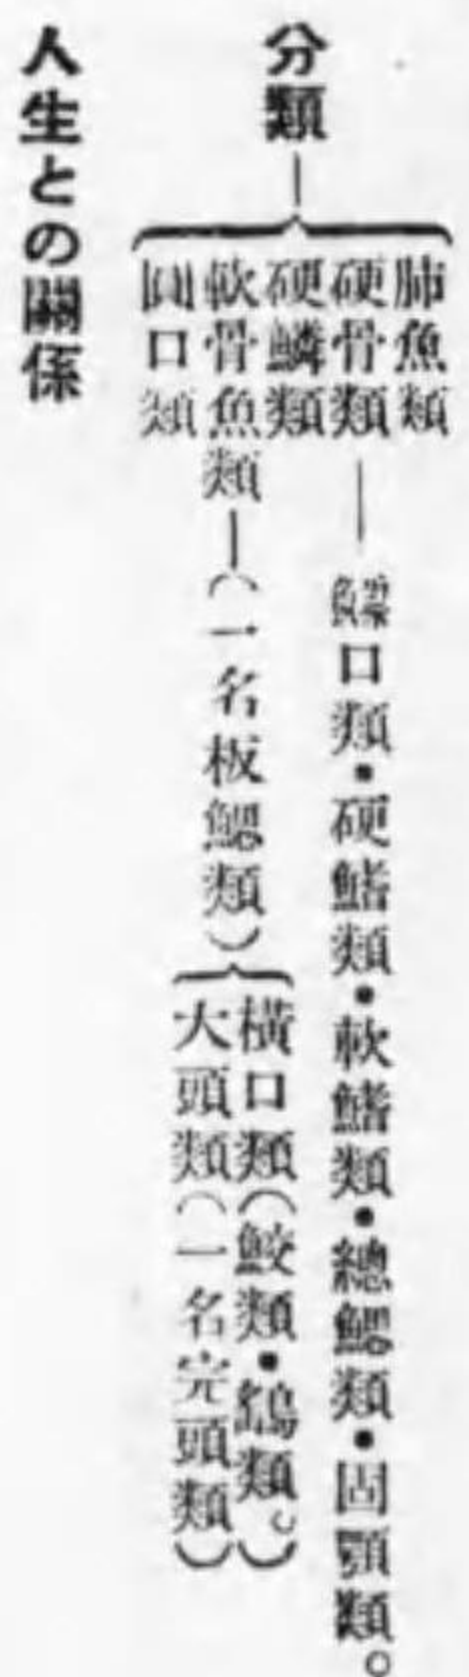 分類
肺魚類
硬骨類―鰾口類・硬鰭類・軟鰭類・總鰓類・固顎類。
硬鱗類
軟骨魚類―(一名板鰓類)
橫口類(鮫類・鷂類。)
大頭類(一名完頭類)
圓口類
人生との關係